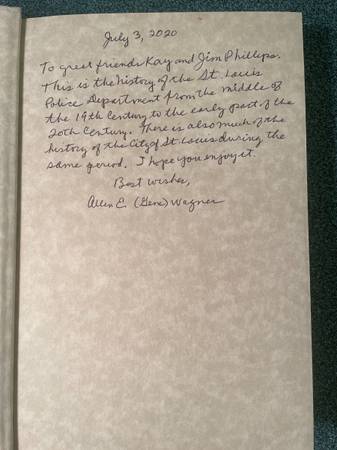 July 3, 2020
To great friends Kay and Jim Phillips.
This is the history of the St. Louis
Police Department from the middle of
the 19th Century to the early part of the
20th Century. There is also much of the
history of the City of St. Louis during the
same period. I hope you enjoy it.
Best wishes,
Allen E. (Gene) Wagner